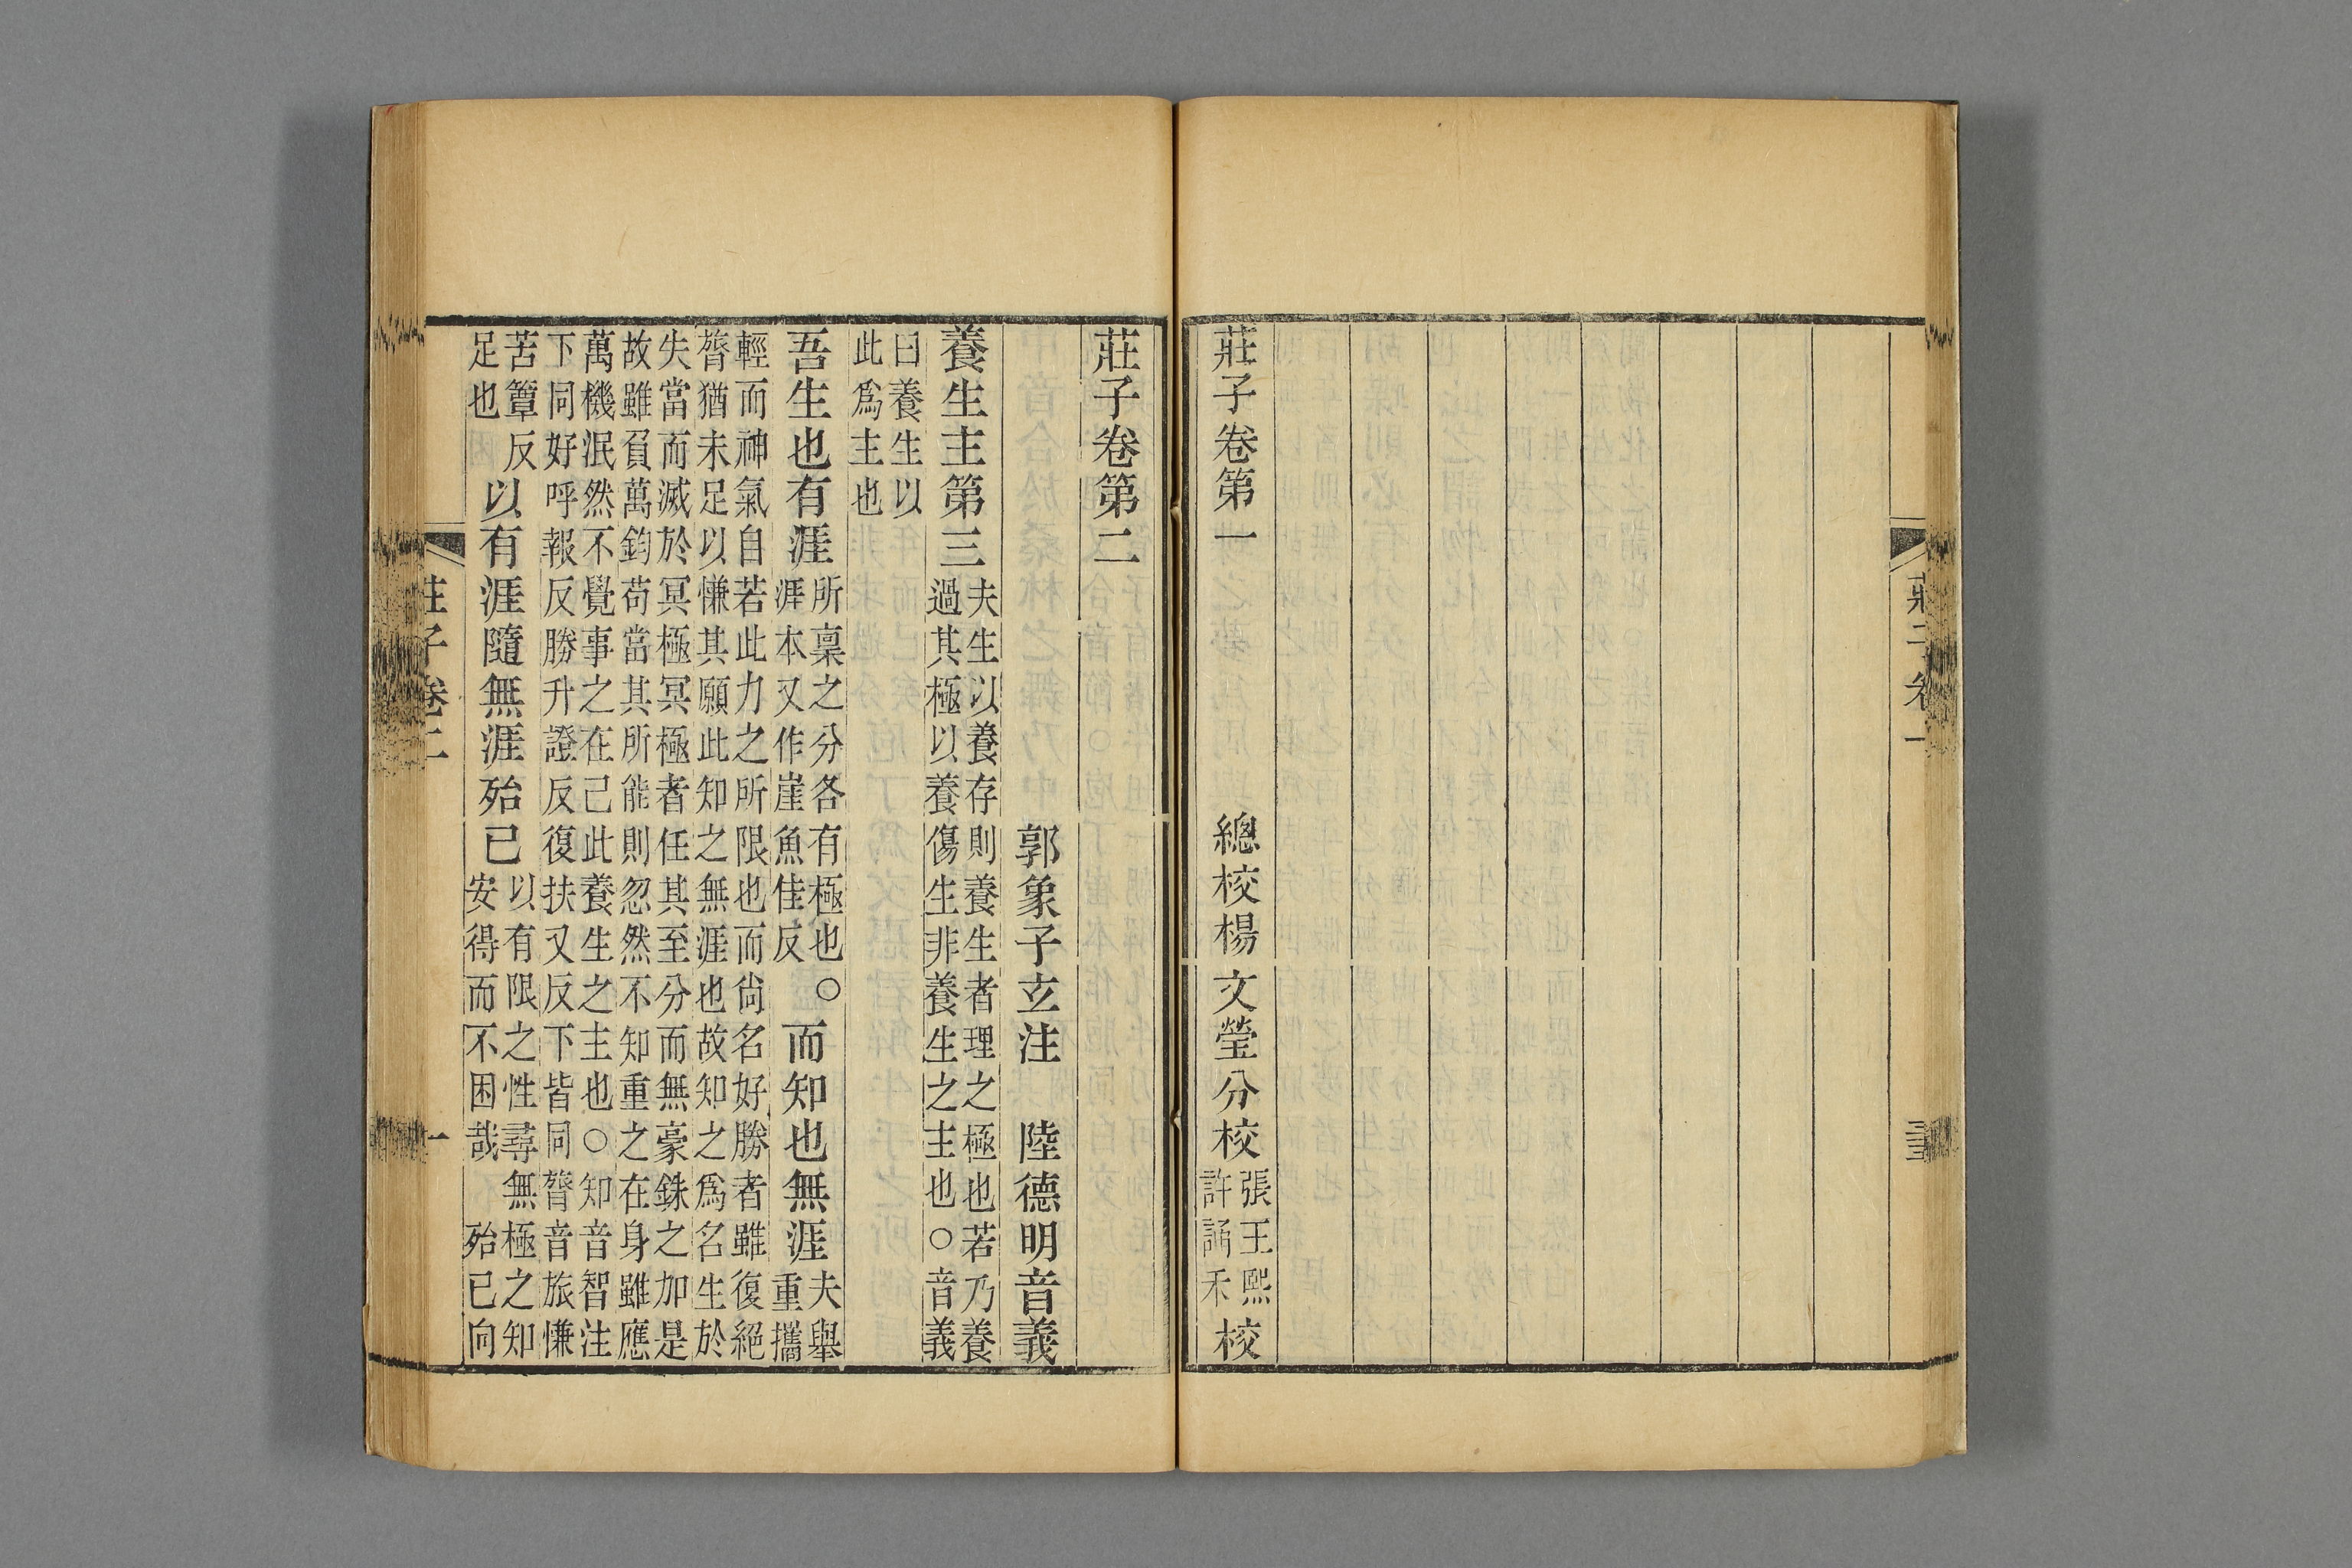 莊子卷第一 總校楊文瑩分校 張王熙 許誦禾 校
莊子卷第二
郭象子玄注 陸德明音義
養生主第三 夫生以養存則養生者理之極也若乃養
過其極以養傷生非養生之主也○音義
曰養生以
此爲主也
吾生也有涯 所稟之分各有極也○ 涯本又作崖魚佳反 而知也無涯 夫舉 重攜
輕而神氣自若此力之所限也而尙名好勝者雖復絕
膂猶未足以慊其願此知之無涯也故知之爲名生於
失當而滅於冥極冥極者任其至分而無豪銖之加是
故雖負萬鈞苟當其所能則忽然不知重之在身雖應
萬機泯然不覺事之在己此養生之主也○知音智注
下同好呼報反勝升證反復扶又反下皆同膂音旅慊
苦簟反 足也 以有涯隨無涯殆已 以有限之性尋無極之知 安得而不困哉 殆已向
莊子卷二 一